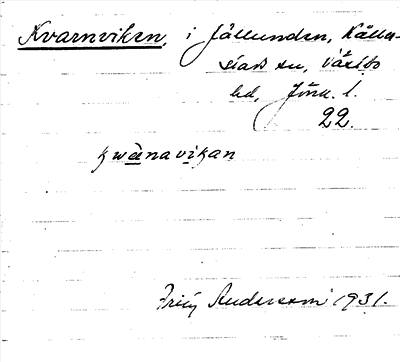 Kvarnviken, i Jällunden, Käller-
stads sn, Västbo
hd, Jönk. l.
22.
kwa̤navikan
Fritz Anderson 1931.